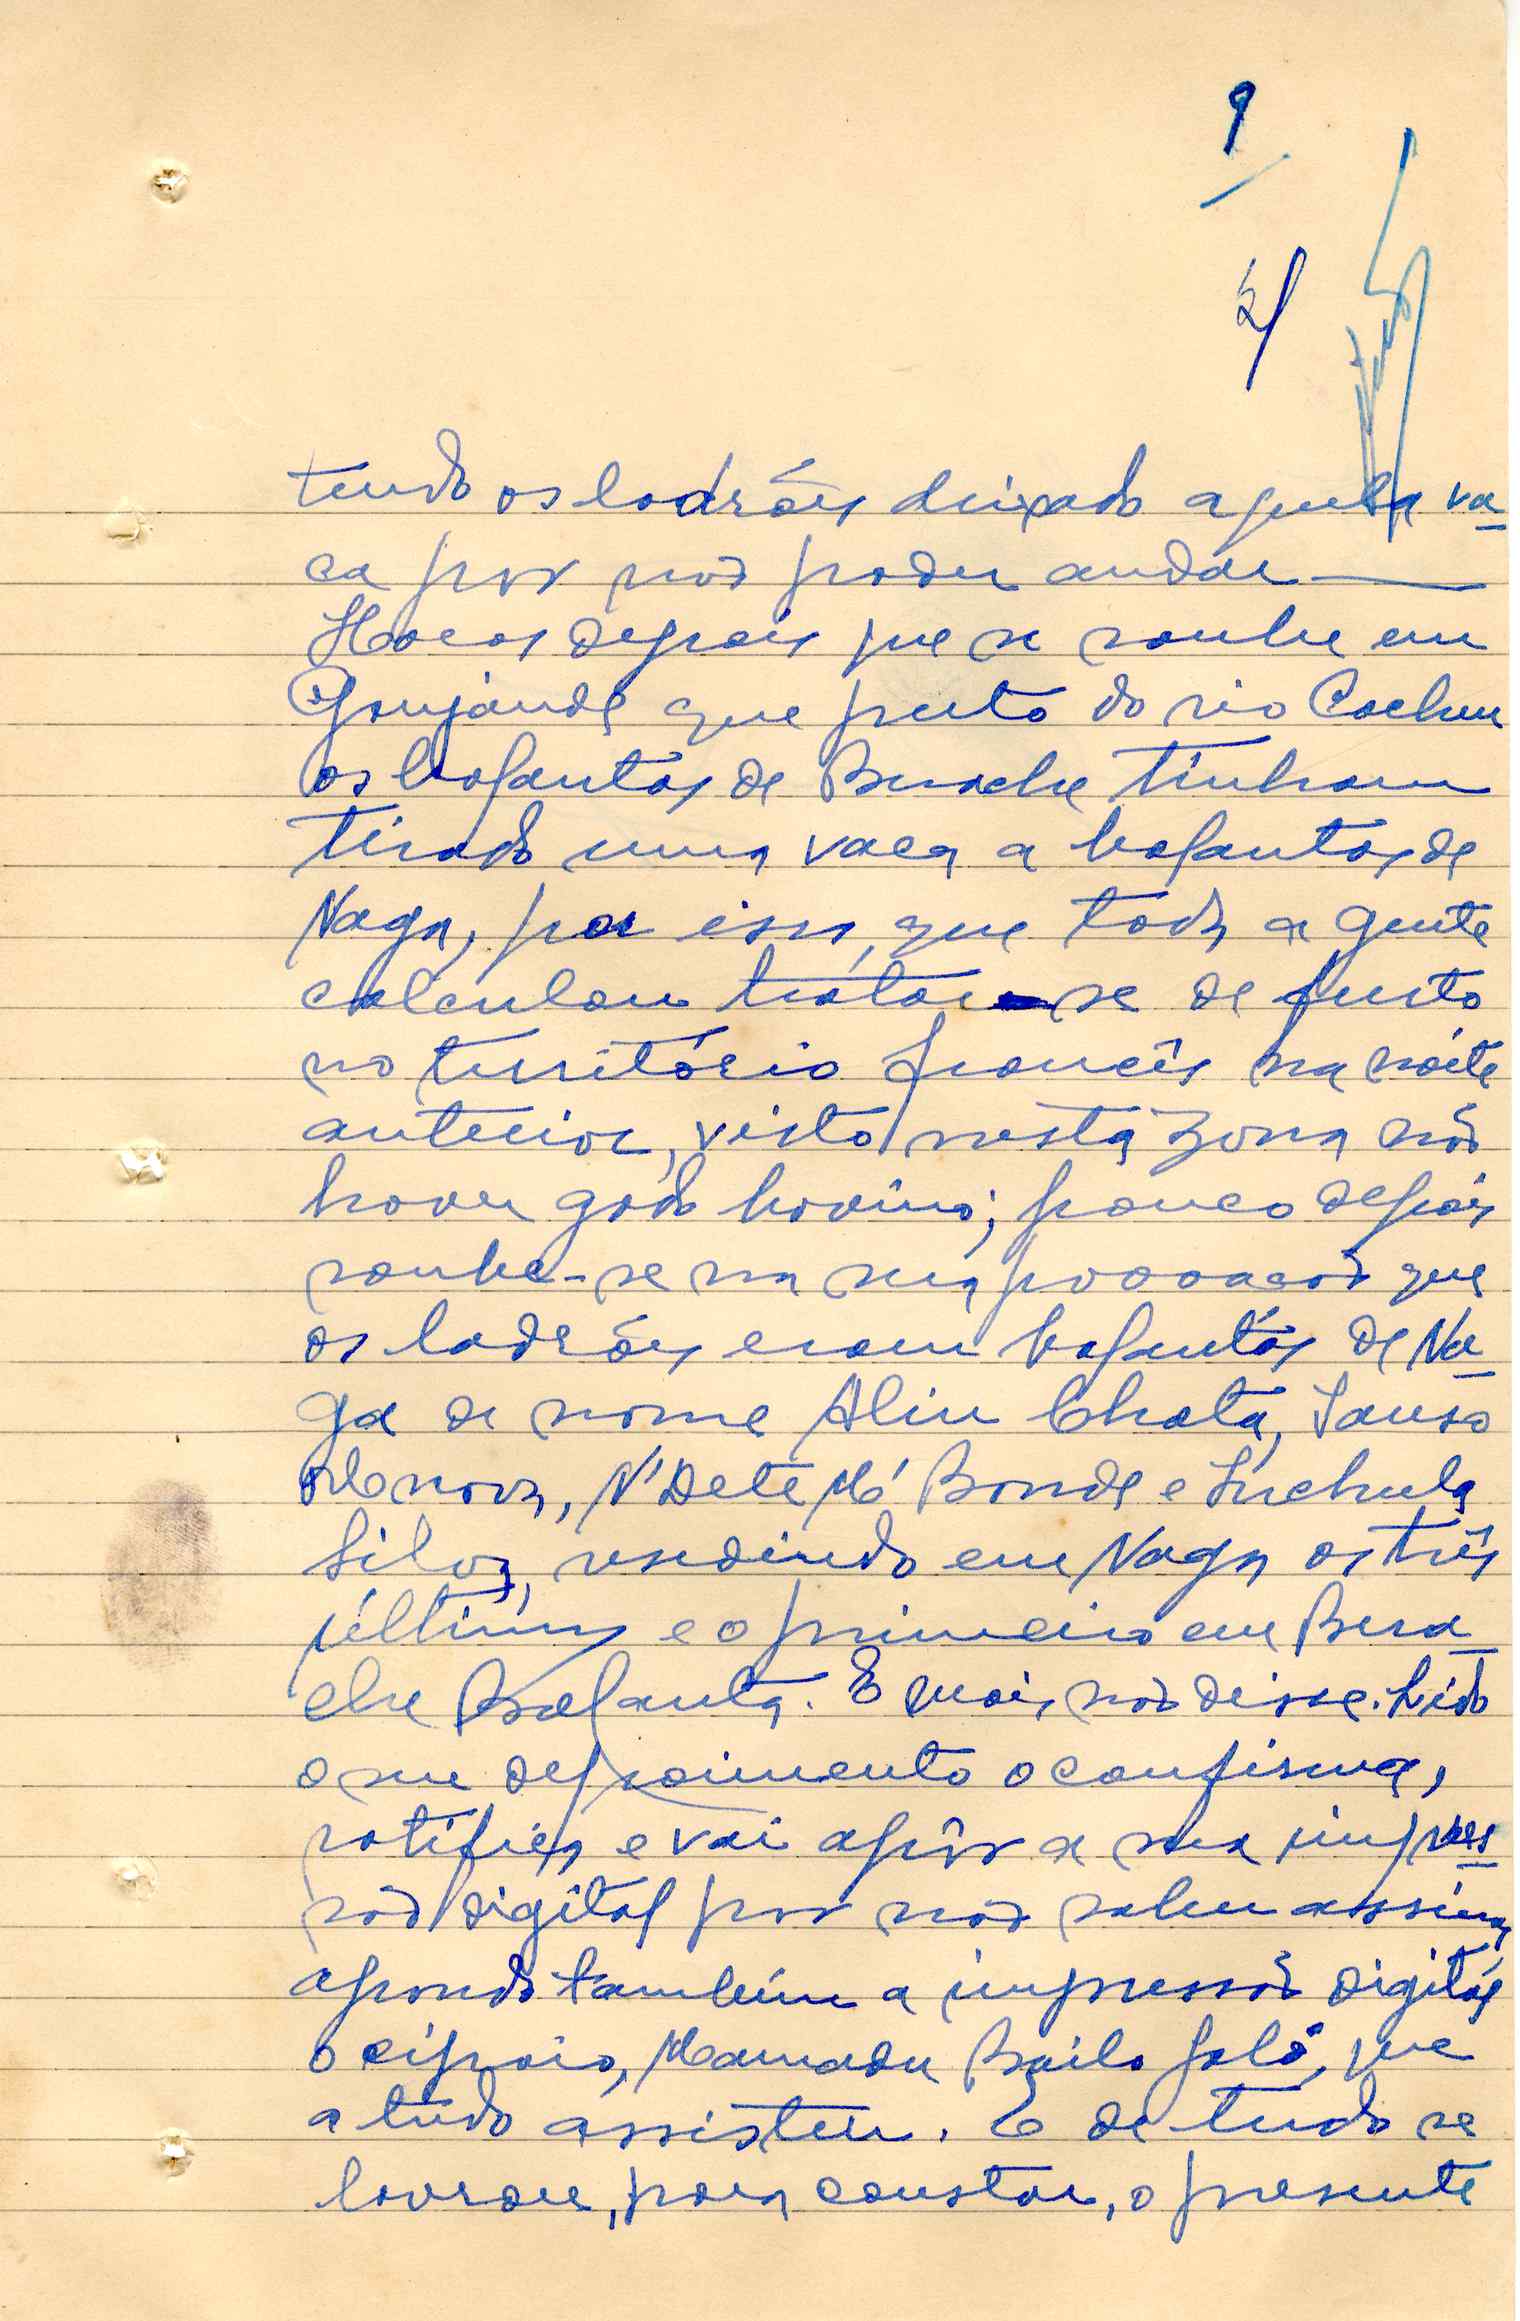 9
tendo os ladrões deixado aquela va-
ca por não poder andar
Horas depois que se soube em
Gonjande que perto do rio Cacheu
os balantas de Berache tinham
tirado uma vaca a balantas de
Naga, por isso, que toda a gente
calculou tratar-se de furto
no território francês na noite
anterior, visto nesta zona não
haver gado bovino; pouco depois
soube-se na sua povoação que
os ladrões eram balantas de Na-
ga de nome Aliu Chata, Sansa
N'Dete M'Bonde e
Silva, residindo em Naga os três
últimos e o primeiro em Bera-
che Balanta. E mais não disse. Lido
o seu depoimento o confirma,
ratifica e vai apôr a sua impres-
são digital por não saber assinar,
apondo também a impressão digital
o cipaio, Mamadu Bailo Jaló, que
a tudo assistiu. E de tudo se
lavrou, para constar, o presente